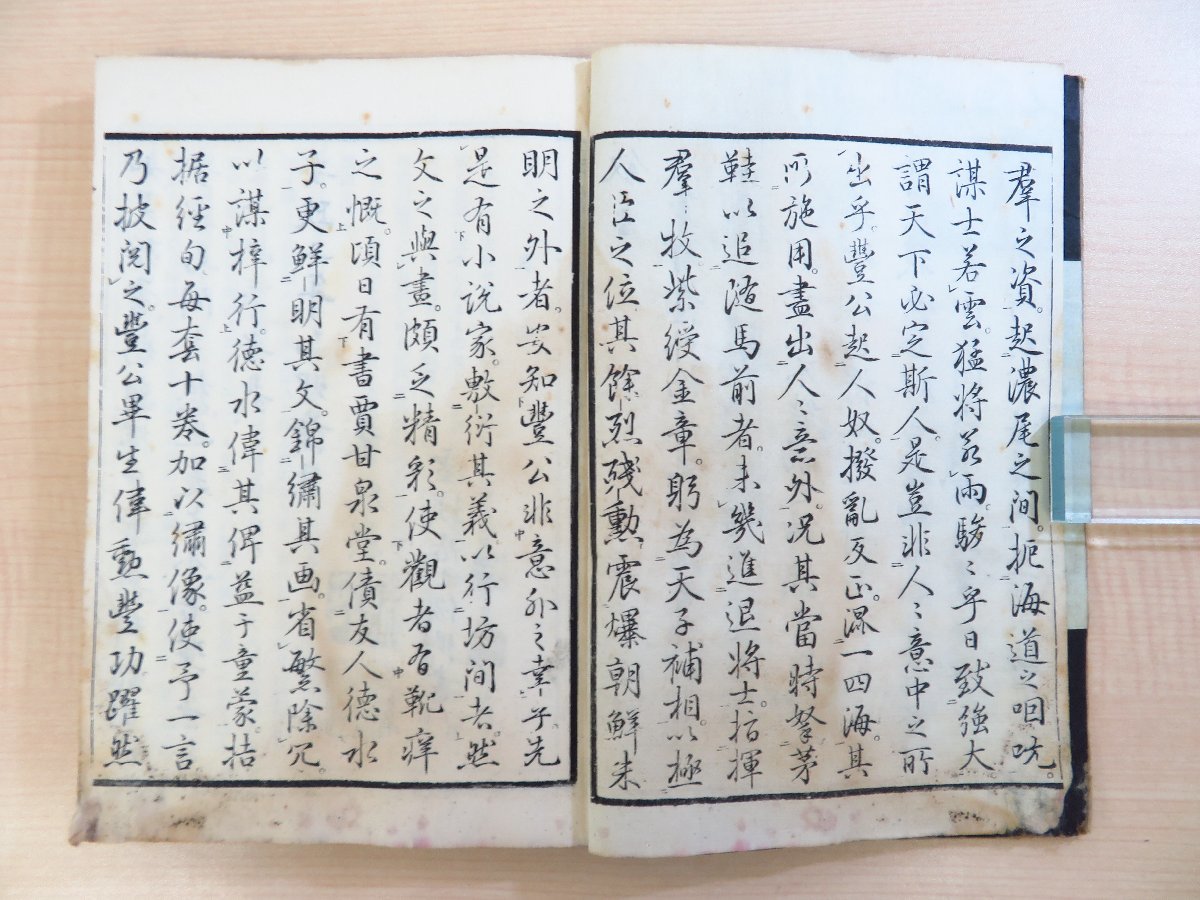 羣之資。起濃尾之间。扼海道之咽吭。
謀士若雲。猛将如雨。駸〻乎日致強大
謂天下必定斯人。是豈非人〻意中之所
出乎。豐公起人奴。撥亂反正。混一四海。其
所施用。盡出人〻意外。况其當時拏茅
鞋以追随馬前者。未幾進退将士。指揮
羣牧紫綬金章。躬為天子補相以極
人臣之位其餘烈殘勲震爆朝鮮朱
明之外者。安知豐公非意外之幸乎先
是有小説家。敷衍其義以行坊间者。然
文之與畫。頗乏精彩。使觀者有靴痒
之慨。頃日有書賈甘泉堂。債友人德水
子。更鮮明其文。錦繍其画。省繁除冗。
以謀梓行。徳水偉其俾益于童蒙。拮
据經旬每套十卷。加以繡像。使予一言
乃披阅之。豐公畢生偉勲豐功躍然